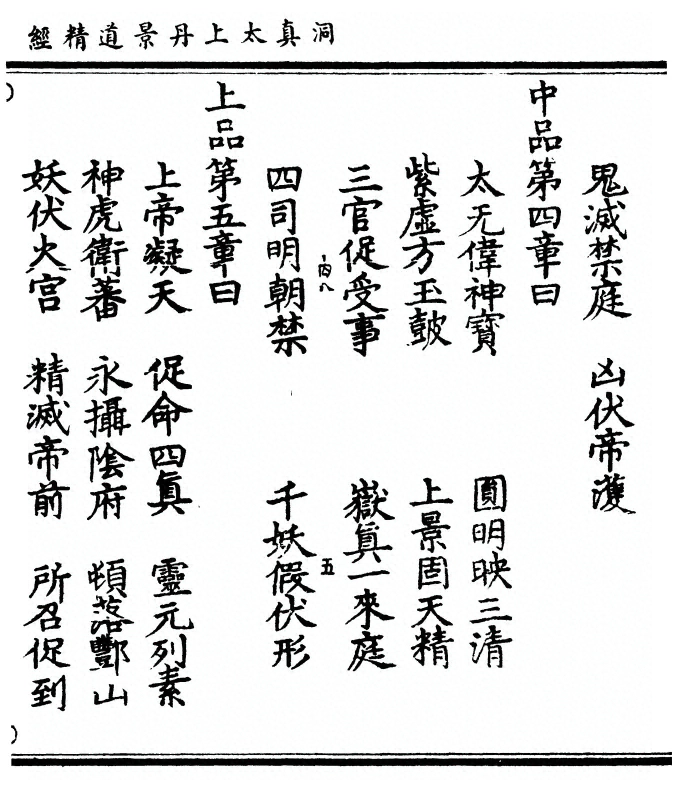 洞真太上丹景道精經
鬼滅禁庭　凶伏帝𫉬
中品第四章曰
太无偉神寶　圓明映三清
紫虛方玉鼓　上景固天精
三官促受事　嶽真一來庭
内八
四司明朝禁　千妖假伏形
五
上品第五章曰
上帝凝天　促命四真　靈元列素
神虎衛蕃　永攝陰府　頓落酆山
妖伏火宮　精滅帝前　所召促到